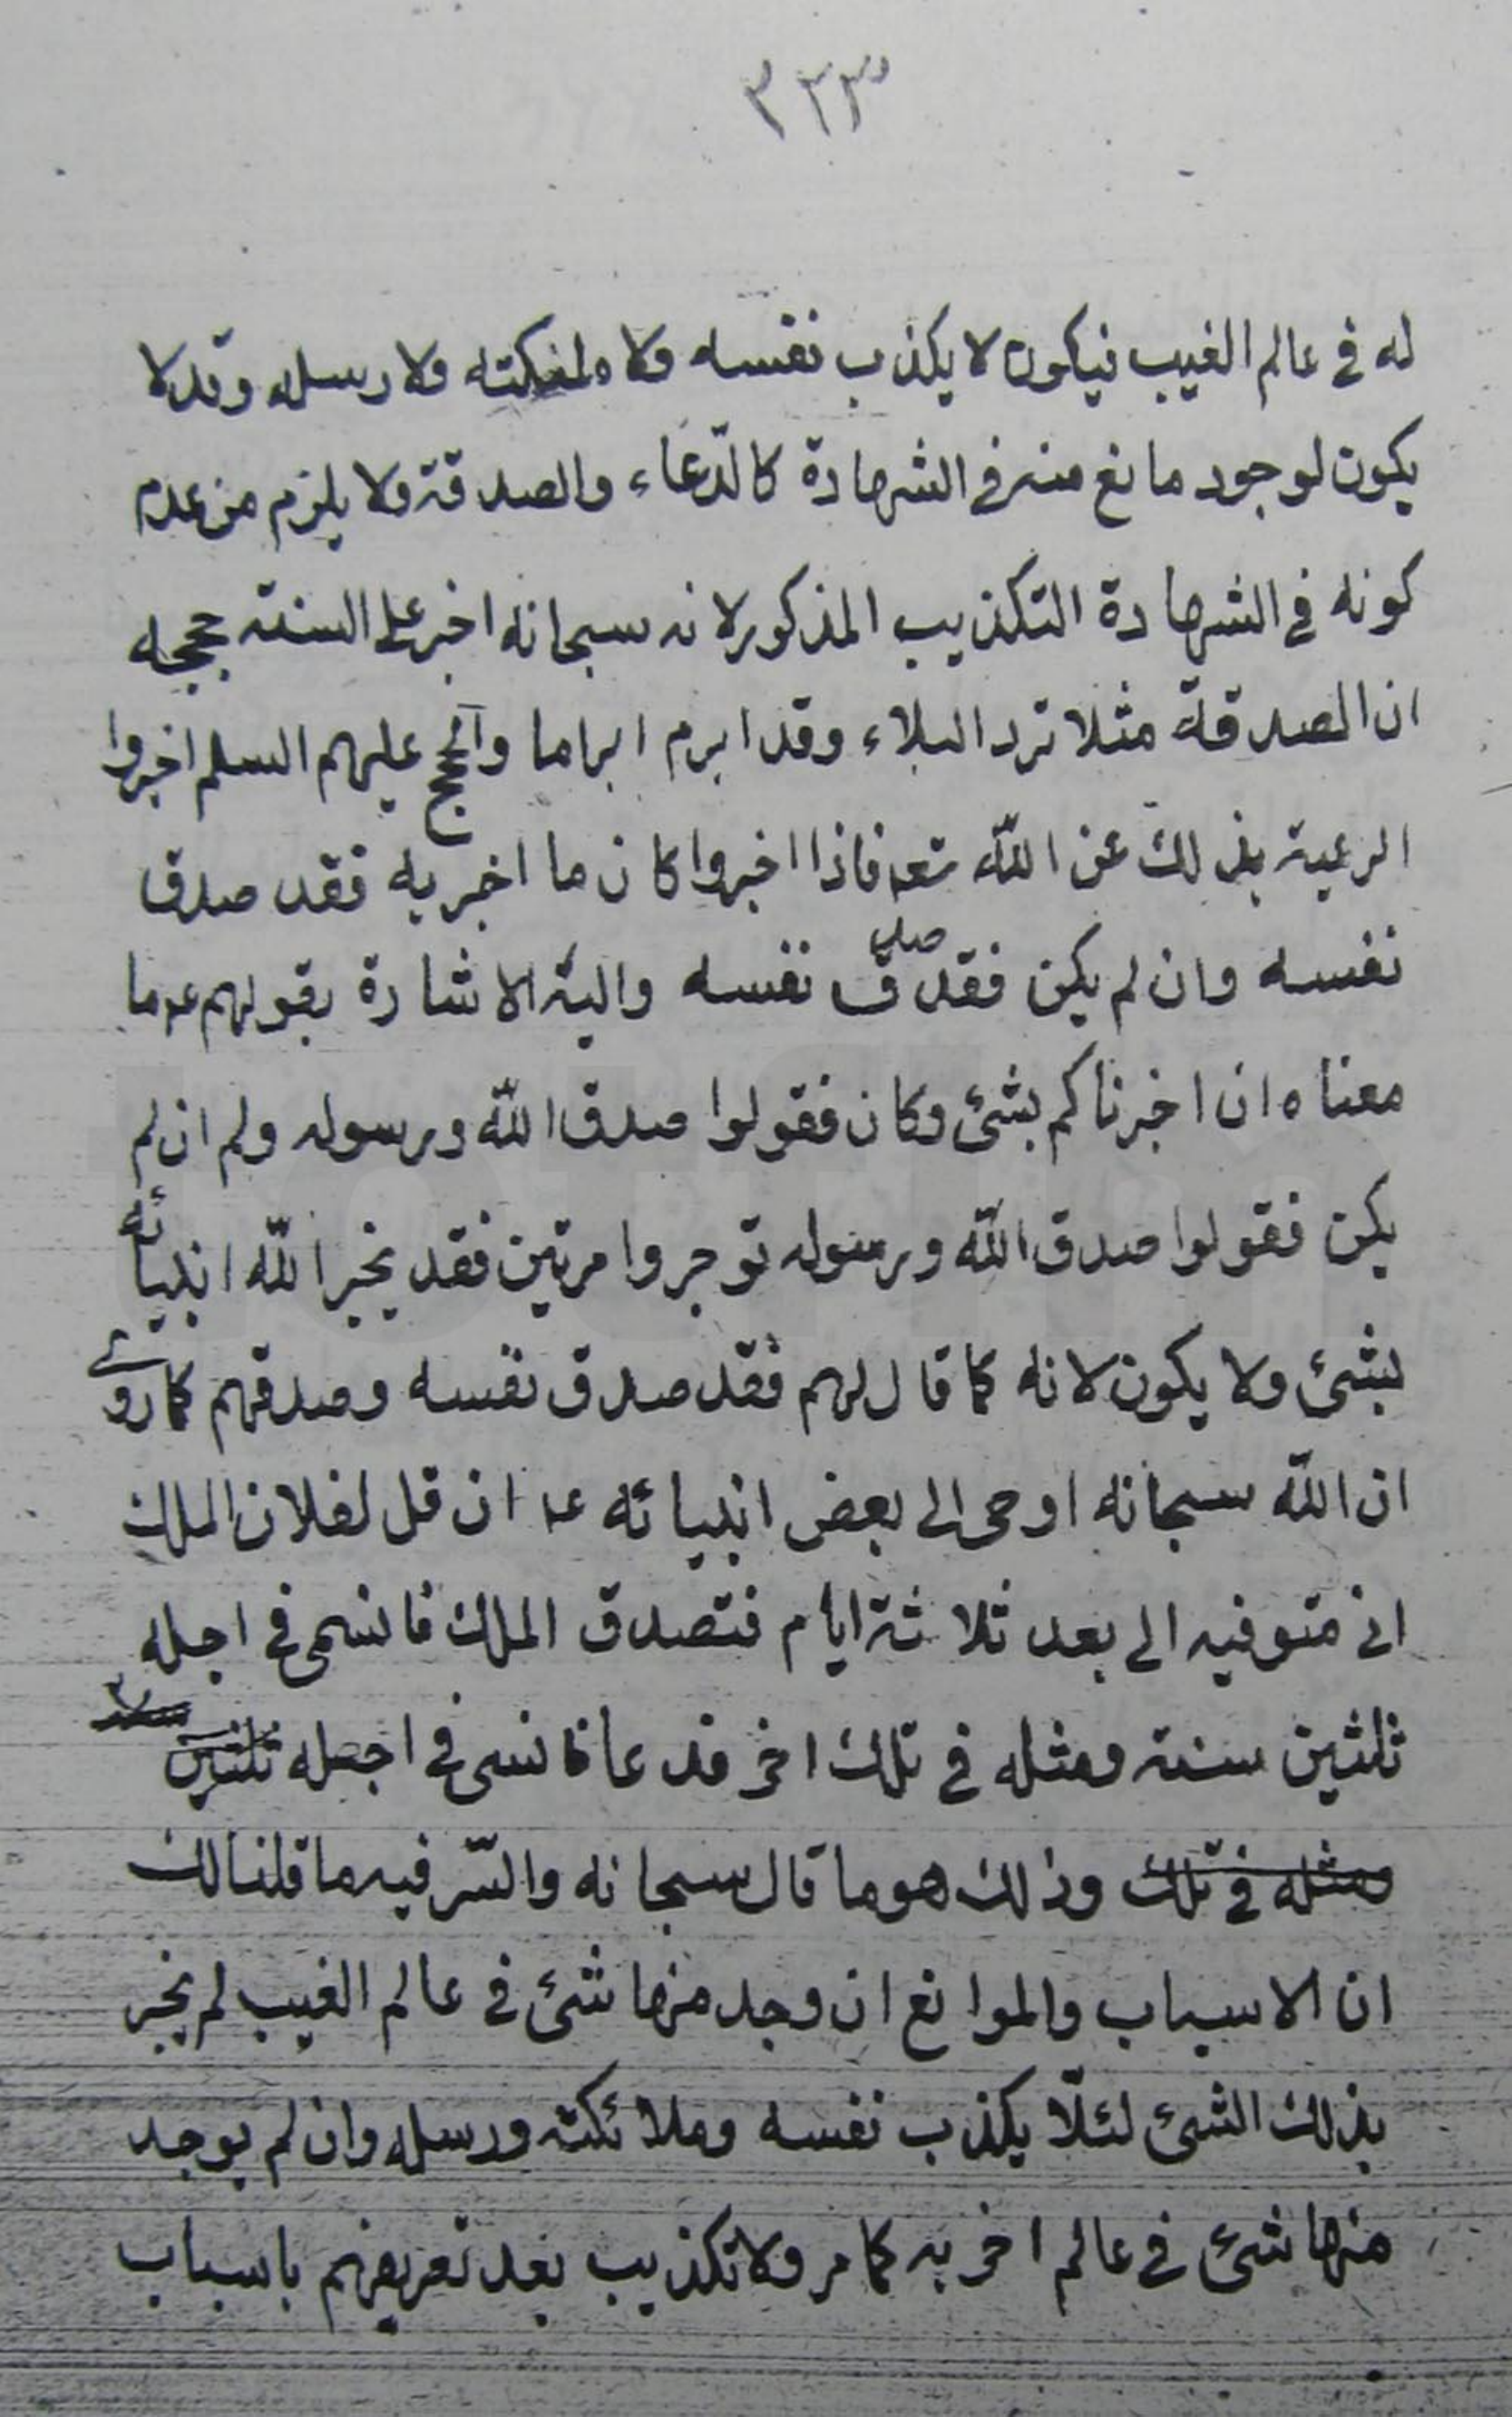 ٣٢٣
له في عالم الغيب فيكون لا يكذب نفسه ولا ملئكته ولا رسله وقد لا
يكون لوجود مانع منه في الشهادة كالدّعاء والصدقة ولا يلزم من عدم
كونه في الشهادة التكذيب المذكور لانه سبحانه اخبر على السنة حججه
ان الصدقة مثلا ترد البلاء وقد ابرم ابراما والحجج عليهم السلم اخبروا
الرعية بذلك عن اللّه تعه فاذا اخبروا كان ما اخبر به فقد صدق
نفسه وان لم يكن فقد صدق نفسه واليه الاشارة بقولهم عم ما
معناه ان اخبرناكم بشئ وكان فقولوا صدق اللّه ورسوله ولم ان لم
يكن فقولوا صدق اللّه ورسوله توجروا مرتين فقد يخبر اللّه انبيائه
بشئ ولا يكون لانه كما قال لهم فقد صدق نفسه وصدقهم كما روى
ان اللّه سبحانه اوحى الى بعض انبيائه ع ان قل لفلان الملك
اني متوفيه الى بعد ثلاثة ايام فتصدق الملك فانسى في اجله
ثلثين سنة ومثله في تلك اخر فدعا فانسى في اجله ثلثين
ومثله في تلك وذلك هو ما قال سبحانه والسّر فيه ما قلنا لك
ان الاسباب والموانع ان وجد منها شئ في عالم الغيب لم يخبر
بذلك الشئ لئلّا يكذب نفسه وملائكته ورسله وان لم يوجد
منها شئ في عالم اخر به كما مر ولا تكذيب بعد تعريفهم باسباب